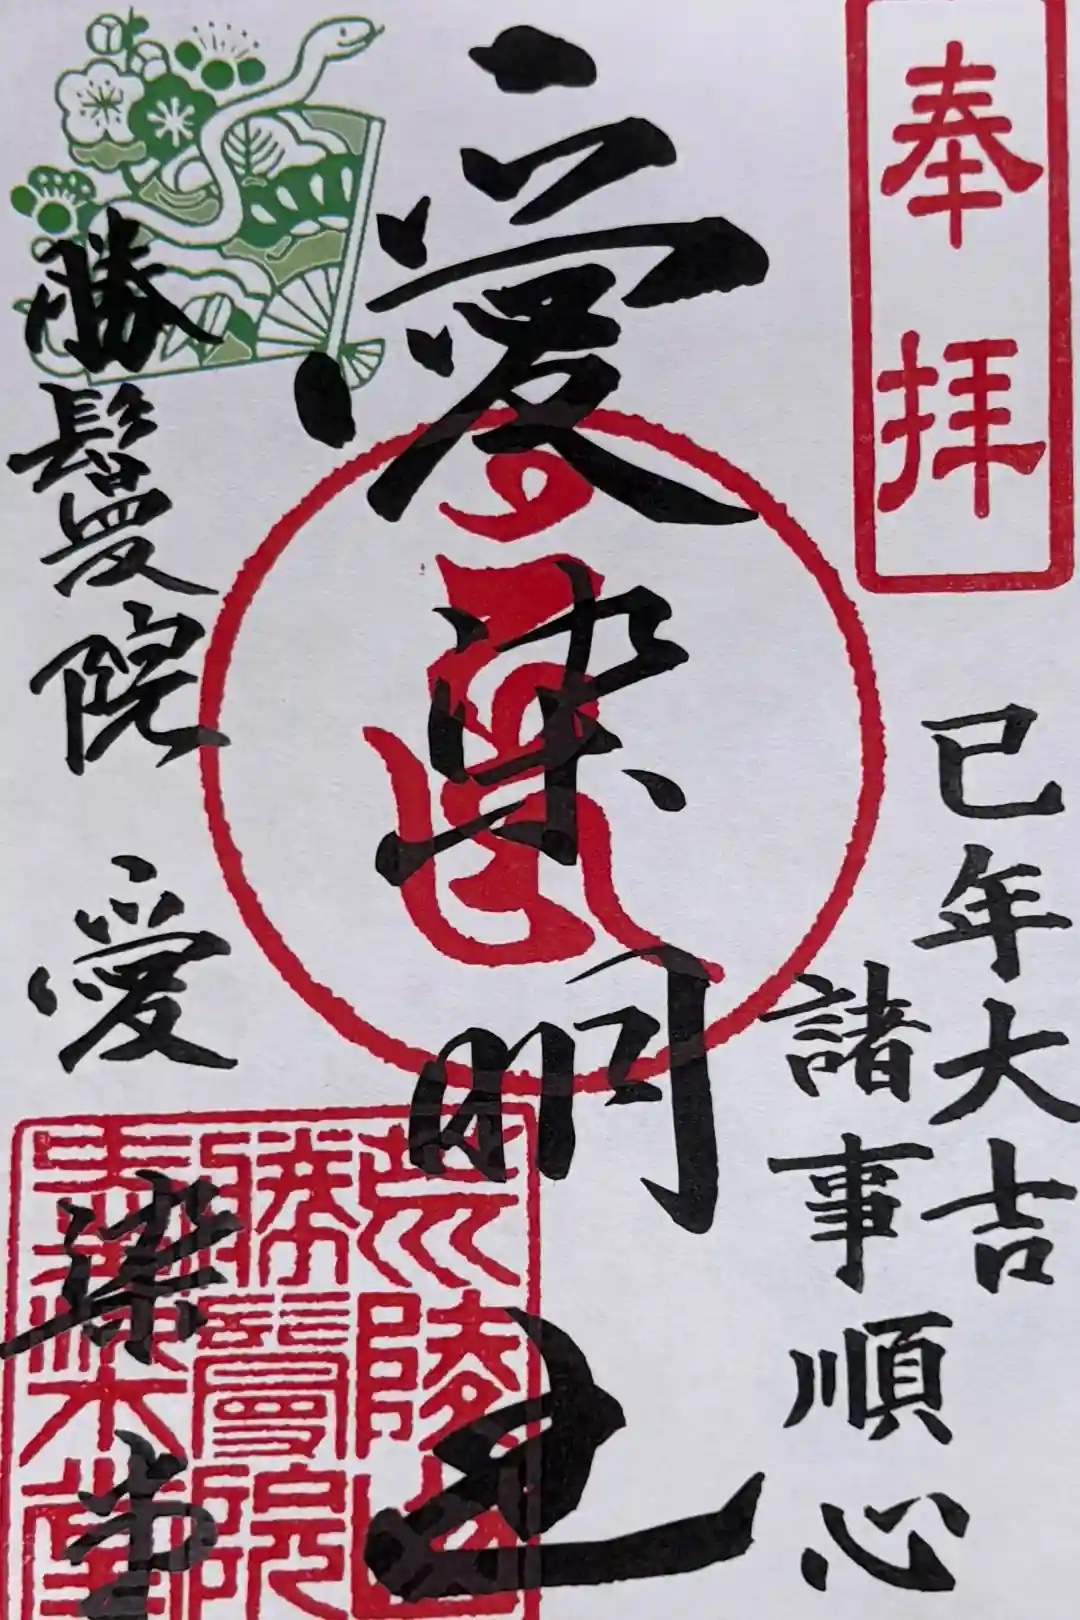 奉拝
巳年大吉
諸事順心
愛染明王
荒陵山
勝鬘院
愛染堂
勝鬘院 愛染堂